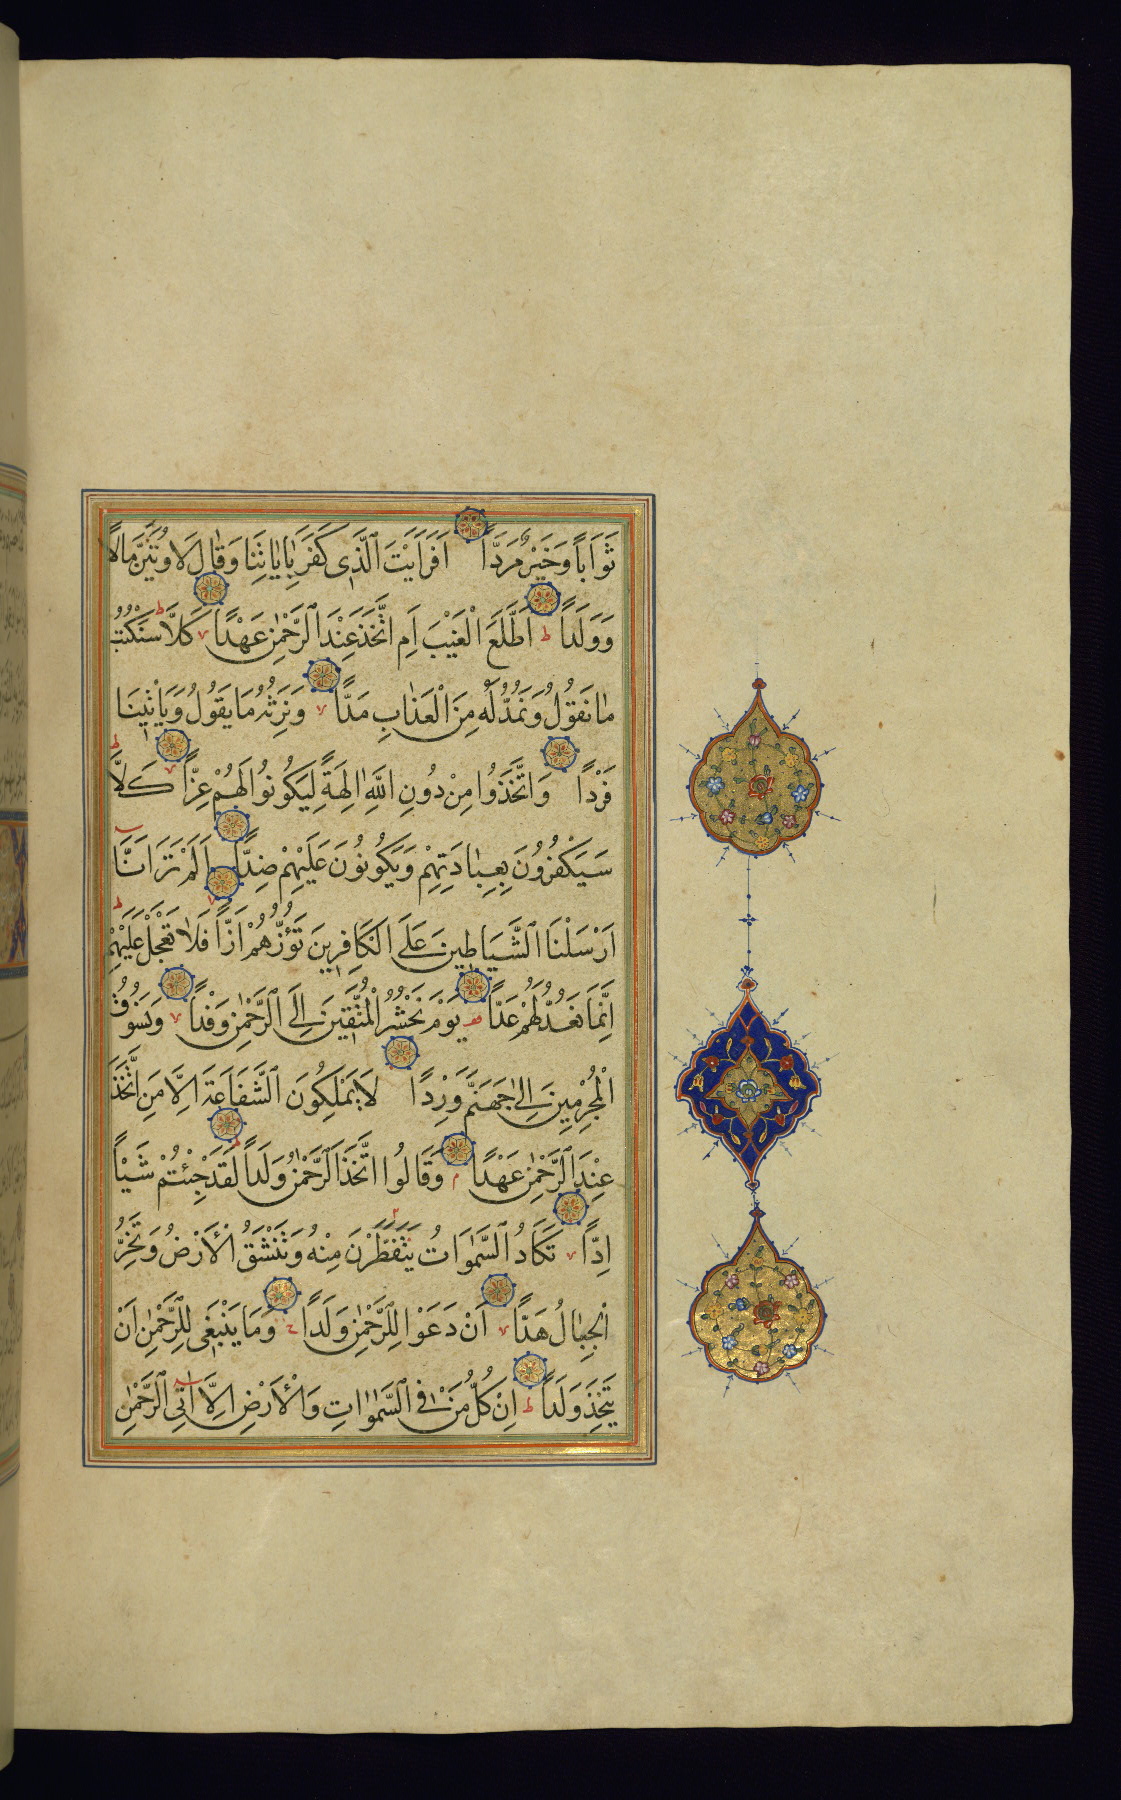 ثَوَابًا وَخَيْرٌ مَرَدًّا اَفَرَاَيْتَ الَّذِى كَفَرَ بِاٰيَاتِنَا وَقَالَ لَاُوتَيَنَّ مَالًا
وَوَلَدًا ط اَطَّلَعَ الْغَيْبَ اَمِ اتَّخَذَ عِنْدَ الرَّحْمٰنِ عَهْدًا كَلَّا ط سَنَكْتُبُ
مَا نَقُولُ وَنَمُدُّ لَهُ مِنَ الْعَذَابِ مَدًّا وَنَرِثُهُ مَا يَقُولُ وَيَاْتِينَا
فَرْدًا وَاتَّخَذُوا مِنْ دُونِ اللّٰهِ اٰلِهَةً لِيَكُونُوا لَهُمْ عِزًّا كَلَّا ط
سَيَكْفُرُونَ بِعِبَادَتِهِمْ وَيَكُونُونَ عَلَيْهِمْ ضِدًّا اَلَمْ تَرَ اَنَّا
اَرْسَلْنَا الشَّيَاطِينَ عَلَى الْكَافِرِينَ تَؤُزُّهُمْ اَزًّا فَلَا تَعْجَلْ عَلَيْهِمْ ط
اِنَّمَا نَعُدُّ لَهُمْ عَدًّا يَوْمَ نَحْشُرُ الْمُتَّقِينَ اِلَى الرَّحْمٰنِ وَفْدًا وَنَسُوقُ
الْمُجْرِمِينَ اِلٰى جَهَنَّمَ وِرْدًا لَا يَمْلِكُونَ الشَّفَاعَةَ اِلَّا مَنِ اتَّخَذَ
عِنْدَ الرَّحْمٰنِ عَهْدًا م وَقَالُوا اتَّخَذَ الرَّحْمٰنُ وَلَدًا لَقَدْ جِئْتُمْ شَيْـًٔا
اِدًّا تَكَادُ السَّمٰوَاتُ يَتَفَطَّرْنَ مِنْهُ وَتَنْشَقُّ الْاَرْضُ وَتَخِرُّ
الْجِبَالُ هَدًّا اَنْ دَعَوْا لِلرَّحْمٰنِ وَلَدًا ج وَمَا يَنْبَغِى لِلرَّحْمٰنِ اَنْ
يَتَّخِذَ وَلَدًا ط اِنْ كُلُّ مَنْ فِى السَّمٰوَاتِ وَالْاَرْضِ اِلَّا اٰتِى الرَّحْمٰنِ